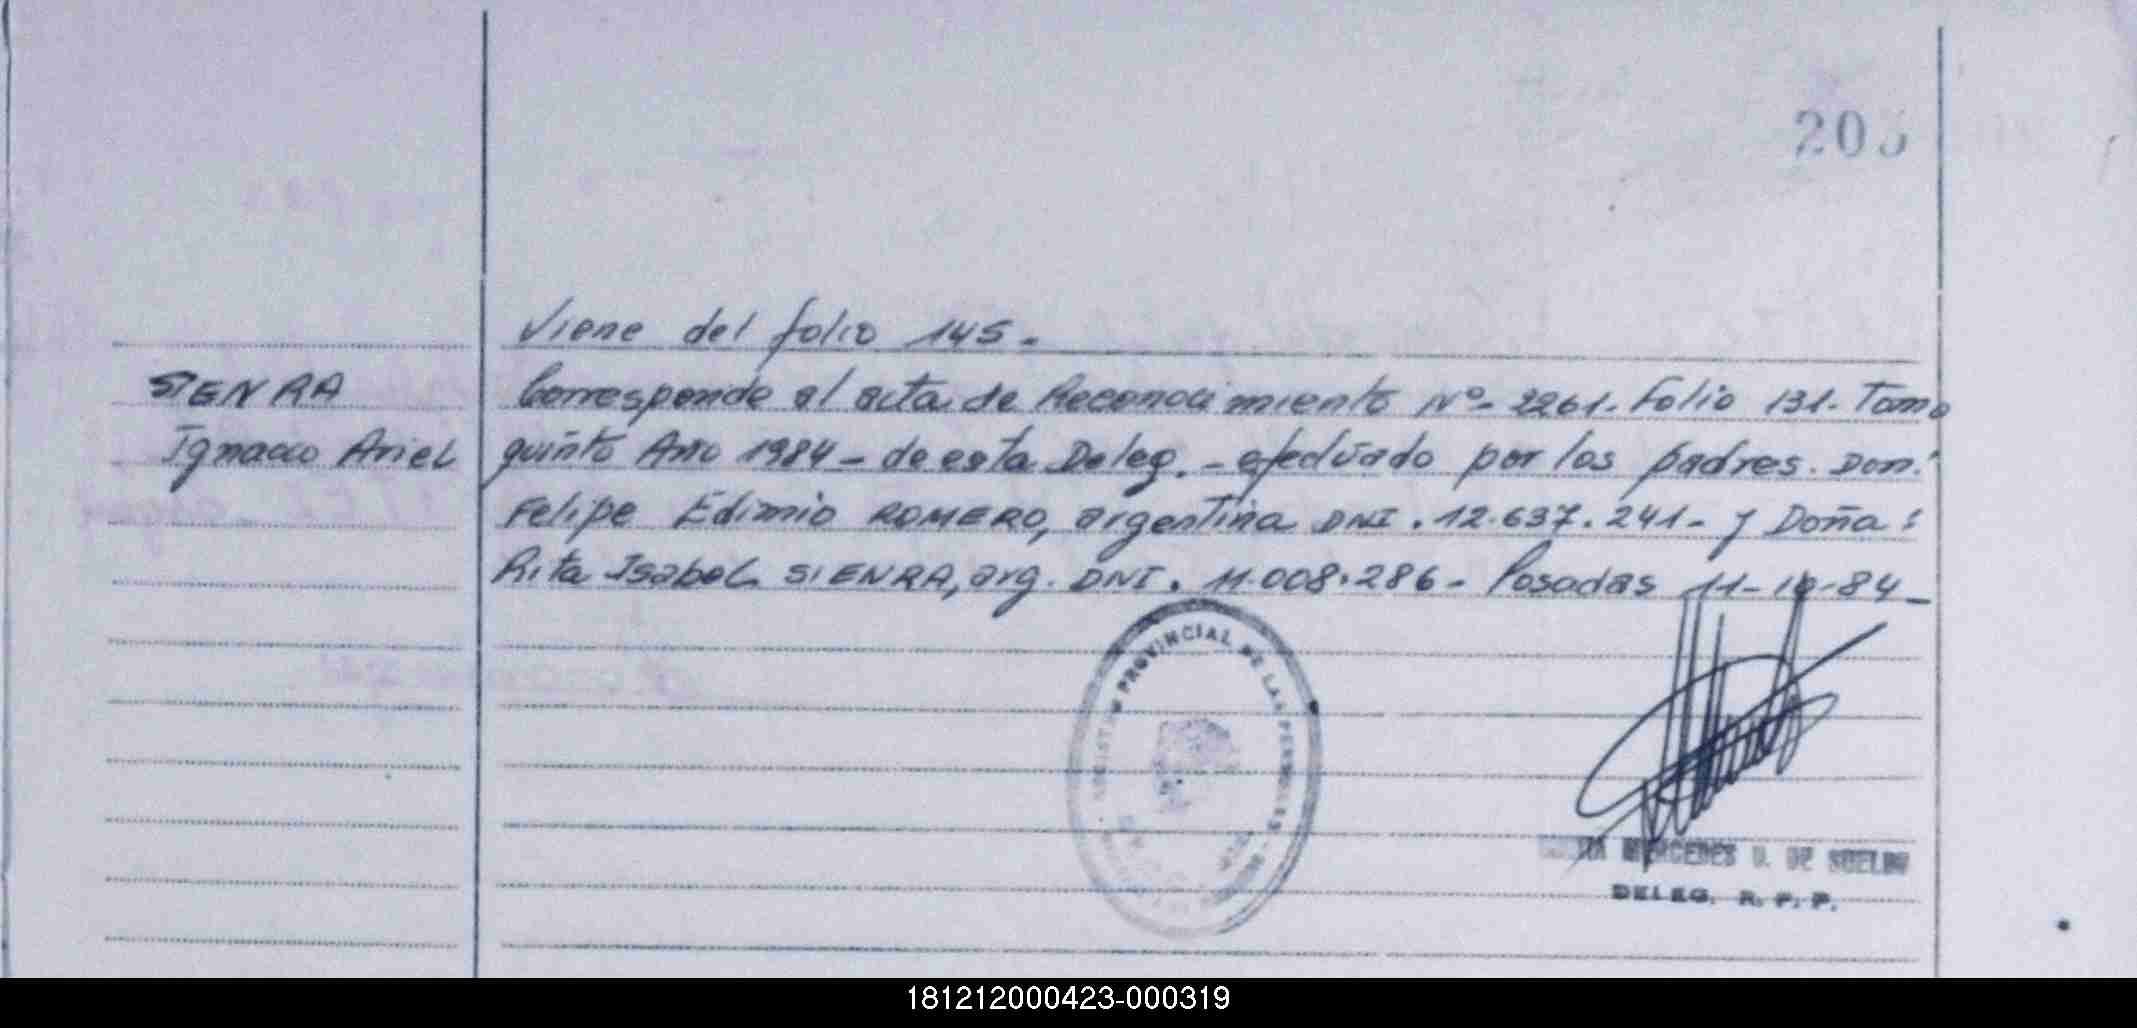 203
Viene del folio 145.
SIENRA
Corresponde al acta de Reconocimiento Nº- 2261- Folio 131- Tomo
Ignacio Ariel
quinto Año 1984 - de esta Deleg. - efectuado por los padres. Don:
Felipe Edimio ROMERO, argentina DNI. 12.637.241- y Doña:
Rita Isabel SIENRA, arg. DNI. 11.008.286- Posadas 11-10-84-
PROVINCIAL DE LAS PERSONAS
MERCEDES V. DE SUELDO
DELEG. R. P. P.
181212000423-000319